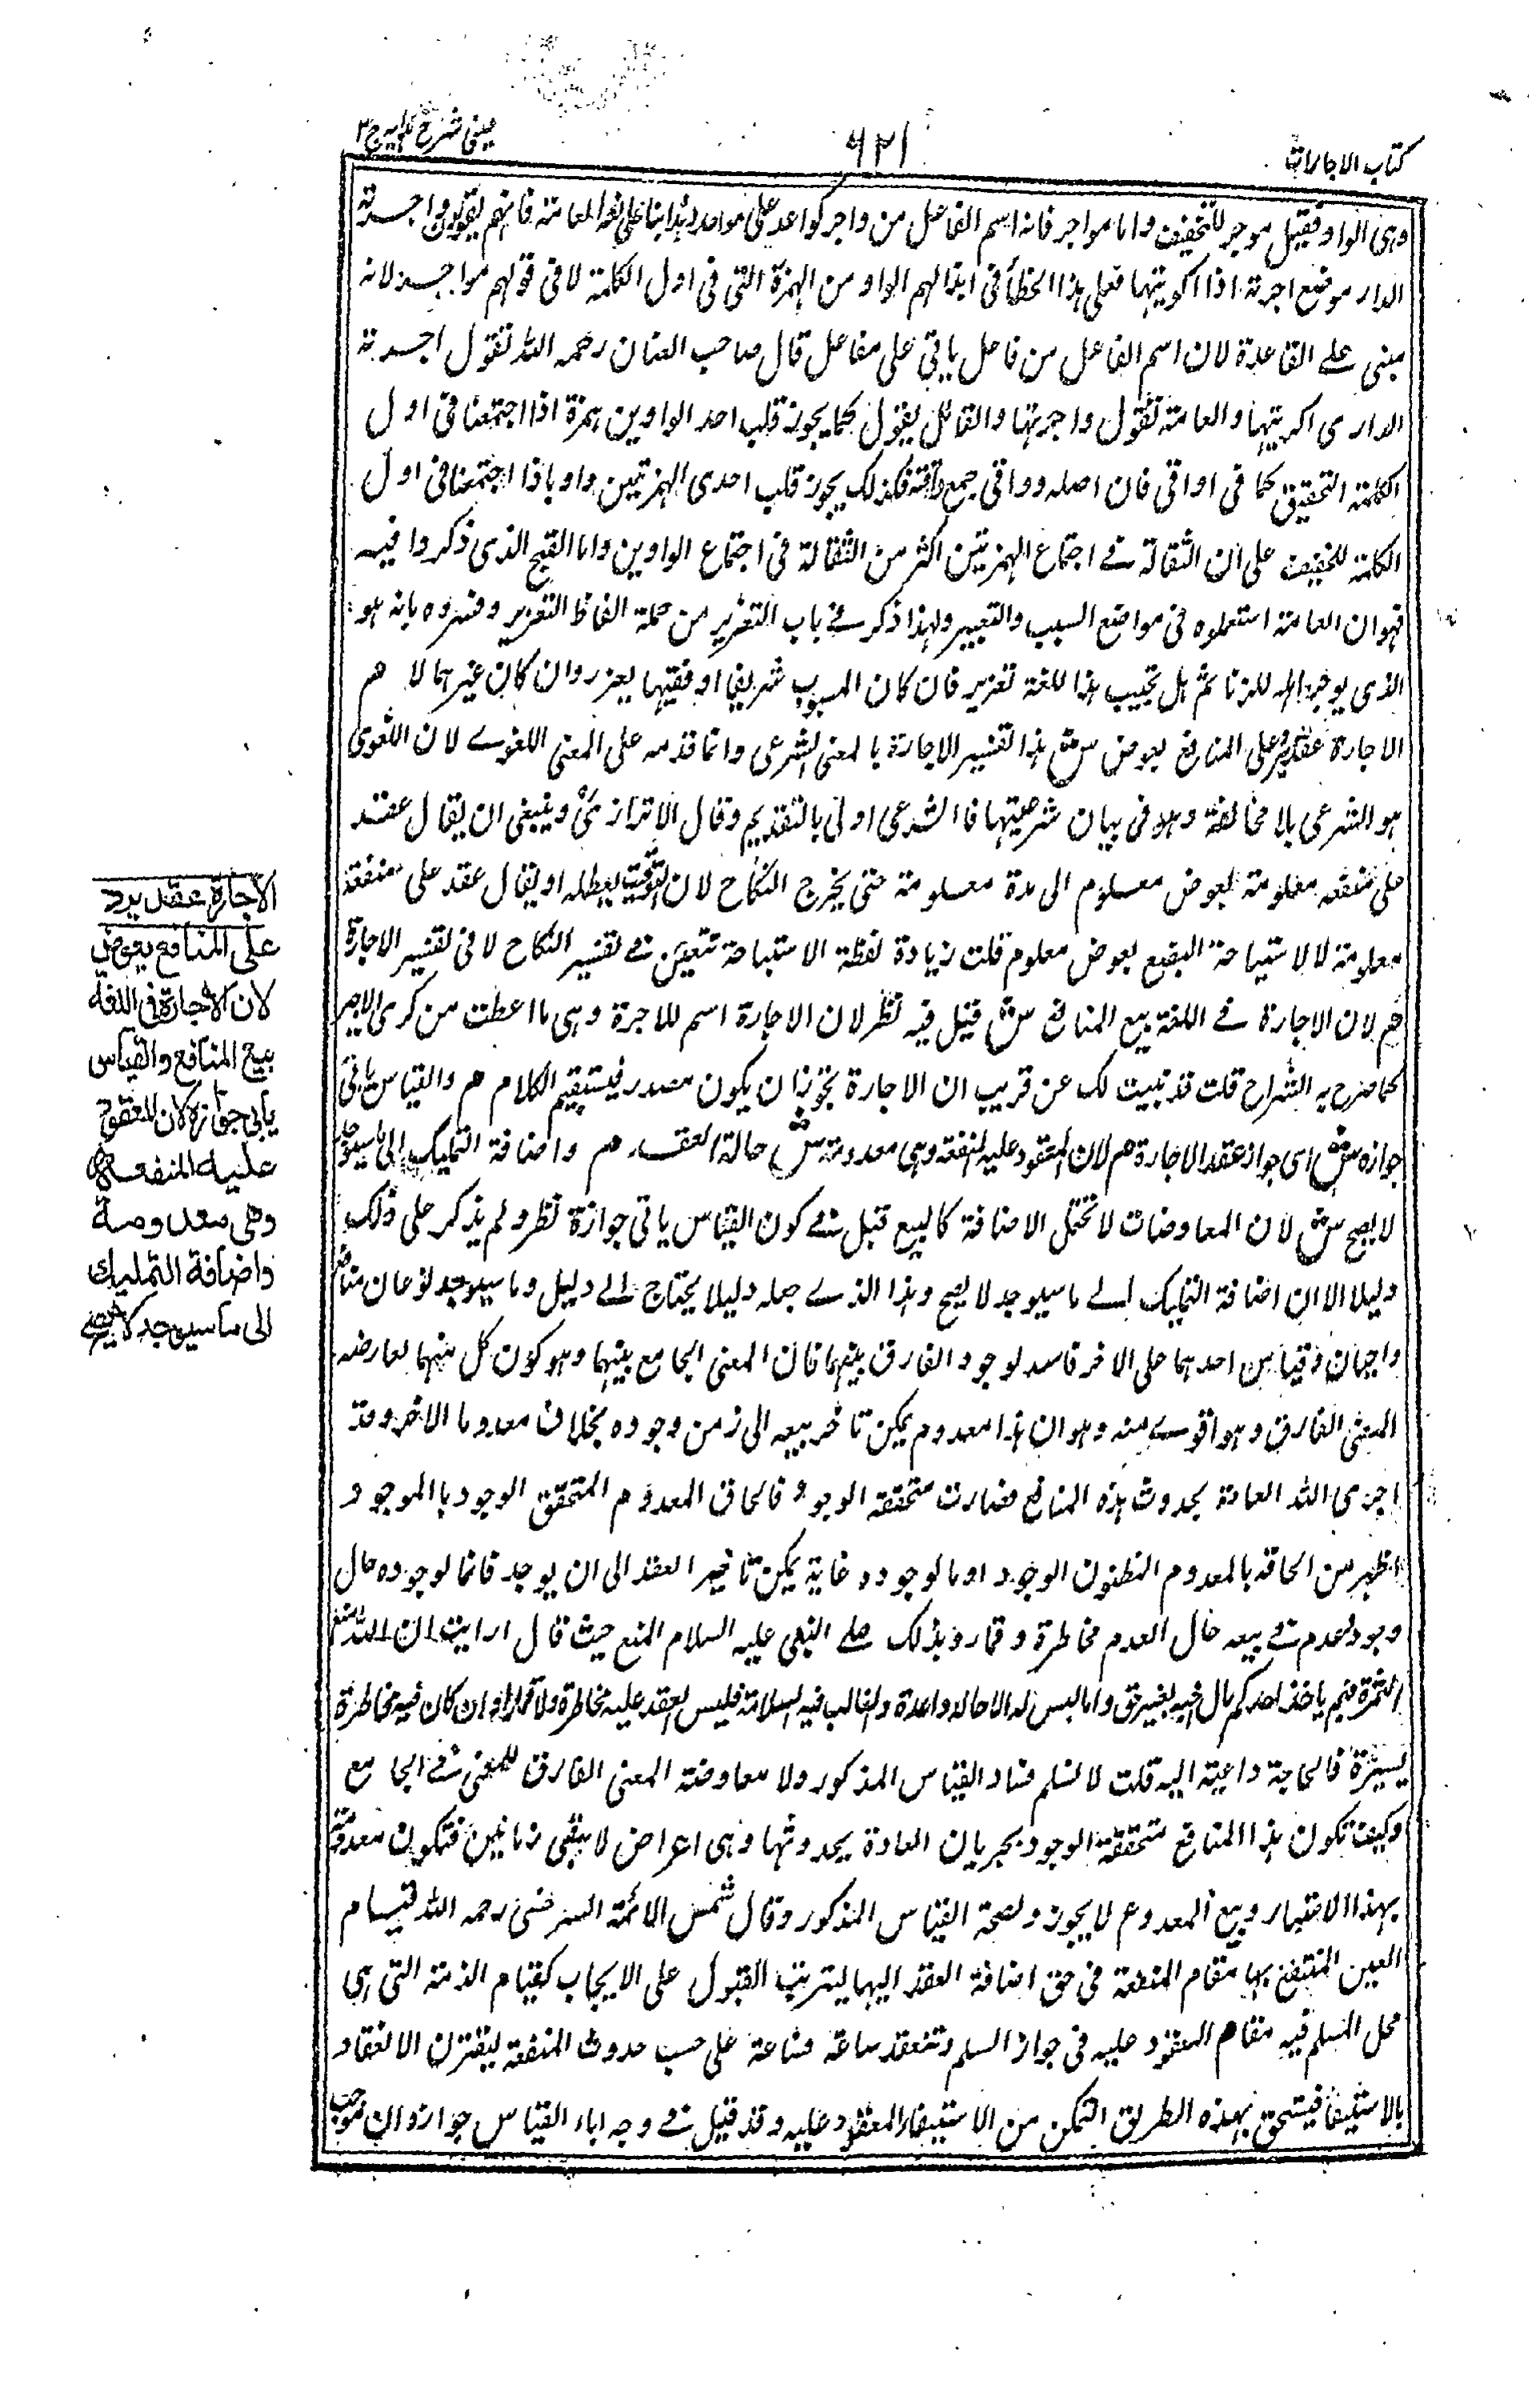 كتاب الاجارات
٦٢١
عينى شرح هدايه ج٣
وهى الواو فقيل موجر للتخفيف واما مواجر فانه اسم الفاعل من واجر كواعد على مواعد لهذا بناء على لغة العامة فانهم يقولون واجرته
الدار موضع اجرته اذا اكريتها فعلى هذا الخطأ فى ابدالهم الواو من الهمزة التى فى اول الكلمة لا فى قولهم مواجر لانه
مبنى على القاعدة لان اسم الفاعل من فاعل ياتى على مفاعل قال صاحب العنان رحمه الله تقول اجرته
الدار ى اكريتها والعامة تقول واجرتها والقائل يقول كما يجوز قلب احد الواوين همزة اذا اجتمعتا فى اول
الكلمة التحقيق كما فى اواقى فان اصله وواقى جمع واقية فكذلك يجوز قلب احدى الهمزتين واوا باذا اجتمعتا فى اول
الكلمة للتخفيف على ان الثقالة فى اجتماع الهمزتين اكثر من الثقالة فى اجتماع الواوين واما القبح الذى ذكروا فيه
فهو ان العامة استعملوه فى مواضع السبب والتعيير ولهذا ذكر فى باب التعزير من جملة الفاظ التعزير وفسروه بانه هو
الذى يوجر اهله للزنا ثم هل تجيب بهذا للغة تعزير فان كان المسبوب شريفا او فقيها يعزر وان كان غيرهما لا هم
الاجارة عقد يرد على المنافع بعوض ش هذا تفسير الاجارة بالمعنى الشرعى وانما قدمه على المعنى اللغوى لان اللغوى
هو الشرعى بلا مخالفة وهو فى بيان شرعيتها فا الشرعى اولى بالتقديم وقال الاترازى وينبغى ان يقال عقد
على منفعه معلومة بعوض معلوم الى مدة معلومة حتى يخرج النكاح لان التوقيت يبطله او يقال عقد على منفعة
معلومة لا لاستباحة البضع بعوض معلوم قلت زيادة لفظة الاستباحة تتعين فى تفسير النكاح لا فى تفسير الاجارة
هم لان الاجارة فى اللغة بيع المنافع ش قيل فيه نظر لان الاجارة اسم للاجرة وهى ما اعطت من كرى الاجير
كما صرح به الشراح قلت قد تبيت لك عن قريب ان الاجارة يجوز ان يكون مصدر فيستقيم الكلام هم والقياس يابى
جوازه ش اى جواز عقد الاجارة هم لان المعقود عليه المنفعة وهى معدومة ش حالة العقد هم واضافة التمليك الى ما سيوجد
لا يصح ش لان المعاوضات لا تحتمل الاضافة كالبيع قبل فى كون القياس ياتى جوازة نظر ولم يذكر على ذلك
دليلا الا ان اضافة التمليك الى ما سيوجد لا يصح وهذا الذى جعله دليلا يحتاج الى دليل وما سيوجد نوعان منافع
واعيان وقياس احدهما على الاخر فاسد لوجود الفارق بينهما فان المعنى الجامع بينهما وهو كون كل منهما يعارضه
المعنى الفارق وهو اقوى منه وهو ان هذا معدوم يمكن تاخر بيعه الى زمن وجوده بخلاف معدوما الاخر وقد
اجرى الله العادة بحدوث هذه المنافع فصارت متحققة الوجود فالحاق المعدوم المتحقق الوجود با الموجود
اظهر من الحاقه بالمعدوم المظنون الوجود اوما لوجوده غاية يمكن تاخير العقد الى ان يوجد قائما لوجوده حال
وجود لعدم فى بيعه حال العدم مخاطرة وقمار وبذلك على النبى عليه السلام المنع حيث قال ارايت ان الله منع
الثمرة فبم ياخذ احدكم مال اخيه بغير حق واما ليس له الا حاله واحدة والغالب فيه السلامة فليس العقد عليه مخاطرة ولا قمارا وان كان فيه مخاطرة
يسيرة فالحاجة داعية اليه قلت لا نسلم فساد القياس المذكور ولا معاوضة المعنى الفارق للمعنى فى الجامع
وكيف تكون هذا المنافع متحققة الوجود بجريان العادة بحدوثها وهى اعراض لا يبقى زمانين فتكون معدومة
بهذا الاعتبار وبيع المعدوم لا يجوز ولصحة القياس المذكور وقال شمس الائمة السرخسى رحمه الله قيام
العين المنتفع بها مقام المنفعة فى حق اضافة العقد اليها ليترتب القبول على الايجاب كقيام الذمة التى هى
محل المسلم فيه مقام المعقود عليه فى جواز السلم وتنعقد ساعة فساعة على حسب حدوث المنفعة ليقترن الانعقاد
بالاستيفاء فيتحقق بهذه الطريق التمكن من الاستيفاء المعقود عليه وقد قيل فى وجه اباء القياس جوازه ان موجب
الاجارة عقد يرد
على المنافع بعوض
لان الاجارة فى اللغة
بيع المنافع والقياس
يأبى جوازه لان المعقود
عليه المنفعة
وهى معدومة
واضافة التمليك
الى ما سيوجد لا يصح